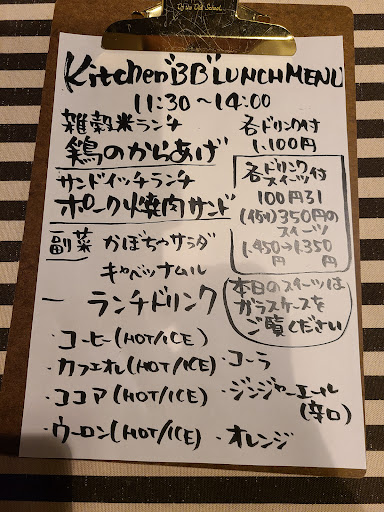 Kitchen "BB" LUNCH MENU
11:30〜14:00
雑穀米ランチ
鶏のからあげ
サンドイッチランチ
ポーク焼肉サンド
各ドリンク付
1.100円
各ドリンク
スイーツ付
100円引
(例)350円の
スイーツ
1.450→1.350
円 円
副菜 かぼちゃサラダ
キャベツナムル
本日のスイーツは
ガラスケースを
ご覧ください
ー ランチドリンク
・コーヒー(HOT/ICE)
・カフェオレ(HOT/ICE)
・ココア(HOT/ICE)
・ウーロン(HOT/ICE)
・コーラ
・ジンジャーエール
(辛口)
・オレンジ